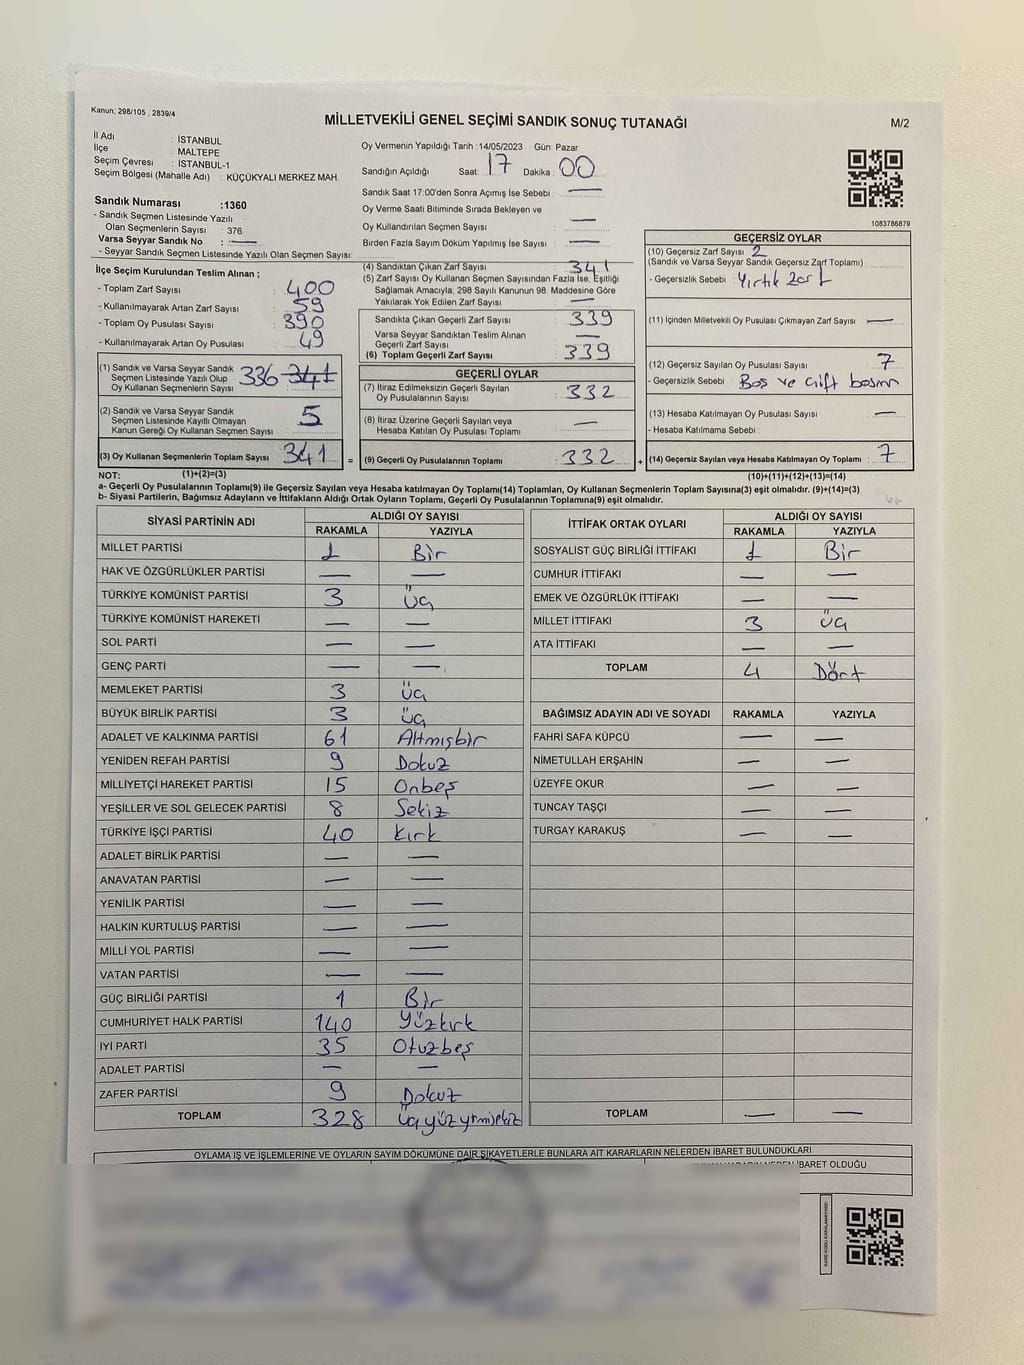 Kanun; 298/105 , 2839/4
MİLLETVEKİLİ GENEL SEÇİMİ SANDIK SONUÇ TUTANAĞI
M/2
İl Adı : İSTANBUL
İlçe : MALTEPE
Seçim Çevresi : İSTANBUL-1
Seçim Bölgesi (Mahalle Adı) : KÜÇÜKYALI MERKEZ MAH.
Sandık Numarası :1360
- Sandık Seçmen Listesinde Yazılı
Olan Seçmenlerin Sayısı : 376
Varsa Seyyar Sandık No : —
- Seyyar Sandık Seçmen Listesinde Yazılı Olan Seçmen Sayısı:
Oy Vermenin Yapıldığı Tarih :14/05/2023 Gün: Pazar
Sandığın Açıldığı Saat: 17 Dakika: 00
Sandık Saat 17:00'den Sonra Açımış İse Sebebi : —
Oy Verme Saati Bitiminde Sırada Bekleyen ve
Oy Kullandırılan Seçmen Sayısı : —
Birden Fazla Sayım Döküm Yapılmış İse Sayısı : —
1083786879
İlçe Seçim Kurulundan Teslim Alınan ;
- Toplam Zarf Sayısı : 400
- Kullanılmayarak Artan Zarf Sayısı : 59
- Toplam Oy Pusulası Sayısı : 390
- Kullanılmayarak Artan Oy Pusulası : 49
(1) Sandık ve Varsa Seyyar Sandık
Seçmen Listesinde Yazılı Olup
Oy Kullanan Seçmenlerin Sayısı 336 341
(2) Sandık ve Varsa Seyyar Sandık
Seçmen Listesinde Kayıtlı Olmayan
Kanun Gereği Oy Kullanan Seçmen Sayısı 5
(3) Oy Kullanan Seçmenlerin Toplam Sayısı 341 =
(4) Sandıktan Çıkan Zarf Sayısı 341
(5) Zarf Sayısı Oy Kullanan Seçmen Sayısından Fazla İse, Eşitliği
Sağlamak Amacıyla, 298 Sayılı Kanunun 98. Maddesine Göre
Yakılarak Yok Edilen Zarf Sayısı : —
Sandıkta Çıkan Geçerli Zarf Sayısı : 339
Varsa Seyyar Sandıktan Teslim Alınan
Geçerli Zarf Sayısı : —
(6) Toplam Geçerli Zarf Sayısı : 339
GEÇERLİ OYLAR
(7) İtiraz Edilmeksizin Geçerli Sayılan
Oy Pusulalarının Sayısı : 332
(8) İtiraz Üzerine Geçerli Sayılan veya
Hesaba Katılan Oy Pusulası Toplamı : —
(9) Geçerli Oy Pusulalarının Toplamı : 332 +
GEÇERSİZ OYLAR
(10) Geçersiz Zarf Sayısı 2
(Sandık ve Varsa Seyyar Sandık Geçersiz Zarf Toplamı) :
- Geçersizlik Sebebi : Yırtık Zarf
(11) İçinden Milletvekili Oy Pusulası Çıkmayan Zarf Sayısı —
(12) Geçersiz Sayılan Oy Pusulası Sayısı : 7
- Geçersizlik Sebebi : Boş ve Çift basım
(13) Hesaba Katılmayan Oy Pusulası Sayısı : —
- Hesaba Katılmama Sebebi :
(14) Geçersiz Sayılan veya Hesaba Katılmayan Oy Toplamı : 7
NOT: (1)+(2)=(3) (10)+(11)+(12)+(13)=(14)
a- Geçerli Oy Pusulalarının Toplamı(9) ile Geçersiz Sayılan veya Hesaba katılmayan Oy Toplamı(14) Toplamları, Oy Kullanan Seçmenlerin Toplam Sayısına(3) eşit olmalıdır. (9)+(14)=(3)
b- Siyasi Partilerin, Bağımsız Adayların ve İttifakların Aldığı Ortak Oyların Toplamı, Geçerli Oy Pusulalarının Toplamına(9) eşit olmalıdır.
SİYASİ PARTİNİN ADI ALDIĞI OY SAYISI
RAKAMLA YAZIYLA
MİLLET PARTİSİ 1 Bir
HAK VE ÖZGÜRLÜKLER PARTİSİ — —
TÜRKİYE KOMÜNİST PARTİSİ 3 üç
TÜRKİYE KOMÜNİST HAREKETİ — —
SOL PARTİ — —
GENÇ PARTİ — —
MEMLEKET PARTİSİ 3 üç
BÜYÜK BİRLİK PARTİSİ 3 üç
ADALET VE KALKINMA PARTİSİ 61 Altmışbir
YENİDEN REFAH PARTİSİ 9 Dokuz
MİLLİYETÇİ HAREKET PARTİSİ 15 Onbeş
YEŞİLLER VE SOL GELECEK PARTİSİ 8 Sekiz
TÜRKİYE İŞÇİ PARTİSİ 40 Kırk
ADALET BİRLİK PARTİSİ — —
ANAVATAN PARTİSİ — —
YENİLİK PARTİSİ — —
HALKIN KURTULUŞ PARTİSİ — —
MİLLİ YOL PARTİSİ — —
VATAN PARTİSİ — —
GÜÇ BİRLİĞİ PARTİSİ 1 Bir
CUMHURİYET HALK PARTİSİ 140 Yüzkırk
İYİ PARTİ 35 Otuzbeş
ADALET PARTİSİ — —
ZAFER PARTİSİ 9 Dokuz
TOPLAM 328 üçyüzyirmisekiz
İTTİFAK ORTAK OYLARI ALDIĞI OY SAYISI
RAKAMLA YAZIYLA
SOSYALİST GÜÇ BİRLİĞİ İTTİFAKI 1 Bir
CUMHUR İTTİFAKI — —
EMEK VE ÖZGÜRLÜK İTTİFAKI — —
MİLLET İTTİFAKI 3 üç
ATA İTTİFAKI — —
TOPLAM 4 Dört
BAĞIMSIZ ADAYIN ADI VE SOYADI RAKAMLA YAZIYLA
FAHRİ SAFA KÜPCÜ — —
NİMETULLAH ERŞAHİN — —
ÜZEYFE OKUR — —
TUNCAY TAŞÇI — —
TURGAY KARAKUŞ — —
TOPLAM — —
OYLAMA İŞ VE İŞLEMLERİNE VE OYLARIN SAYIM DÖKÜMÜNE DAİR ŞİKAYETLERLE BUNLARA AİT KARARLARIN NELERDEN İBARET BULUNDUKLARI
İBARET OLDUĞU